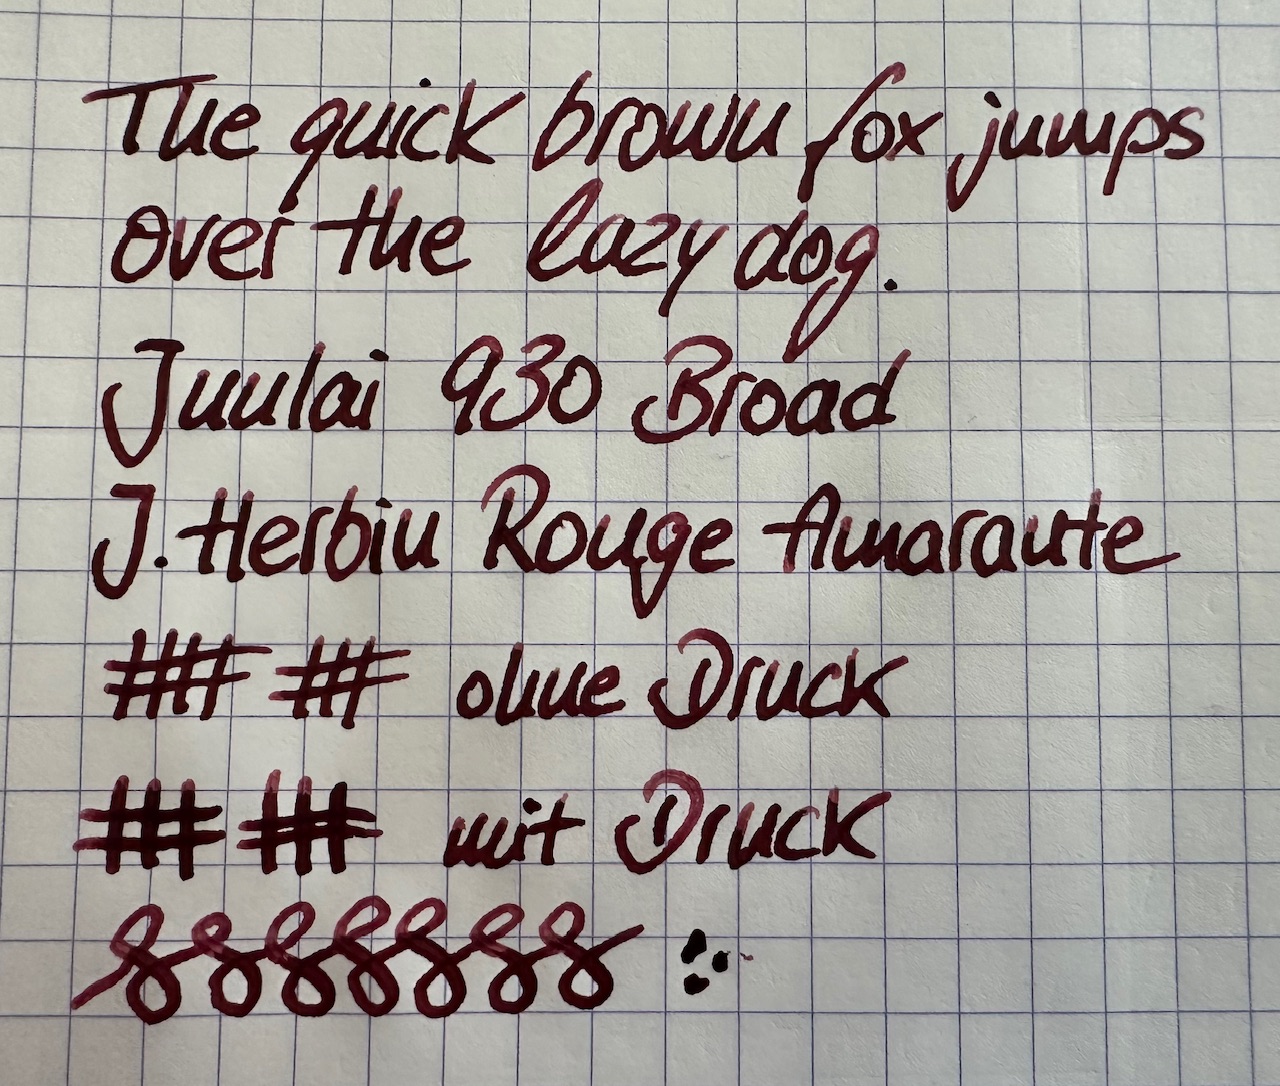 The quick brown fox jumps
over the lazy dog.
Juulai 930 Broad
J. Herbin Rouge Amarante
ohne Druck
mit Druck